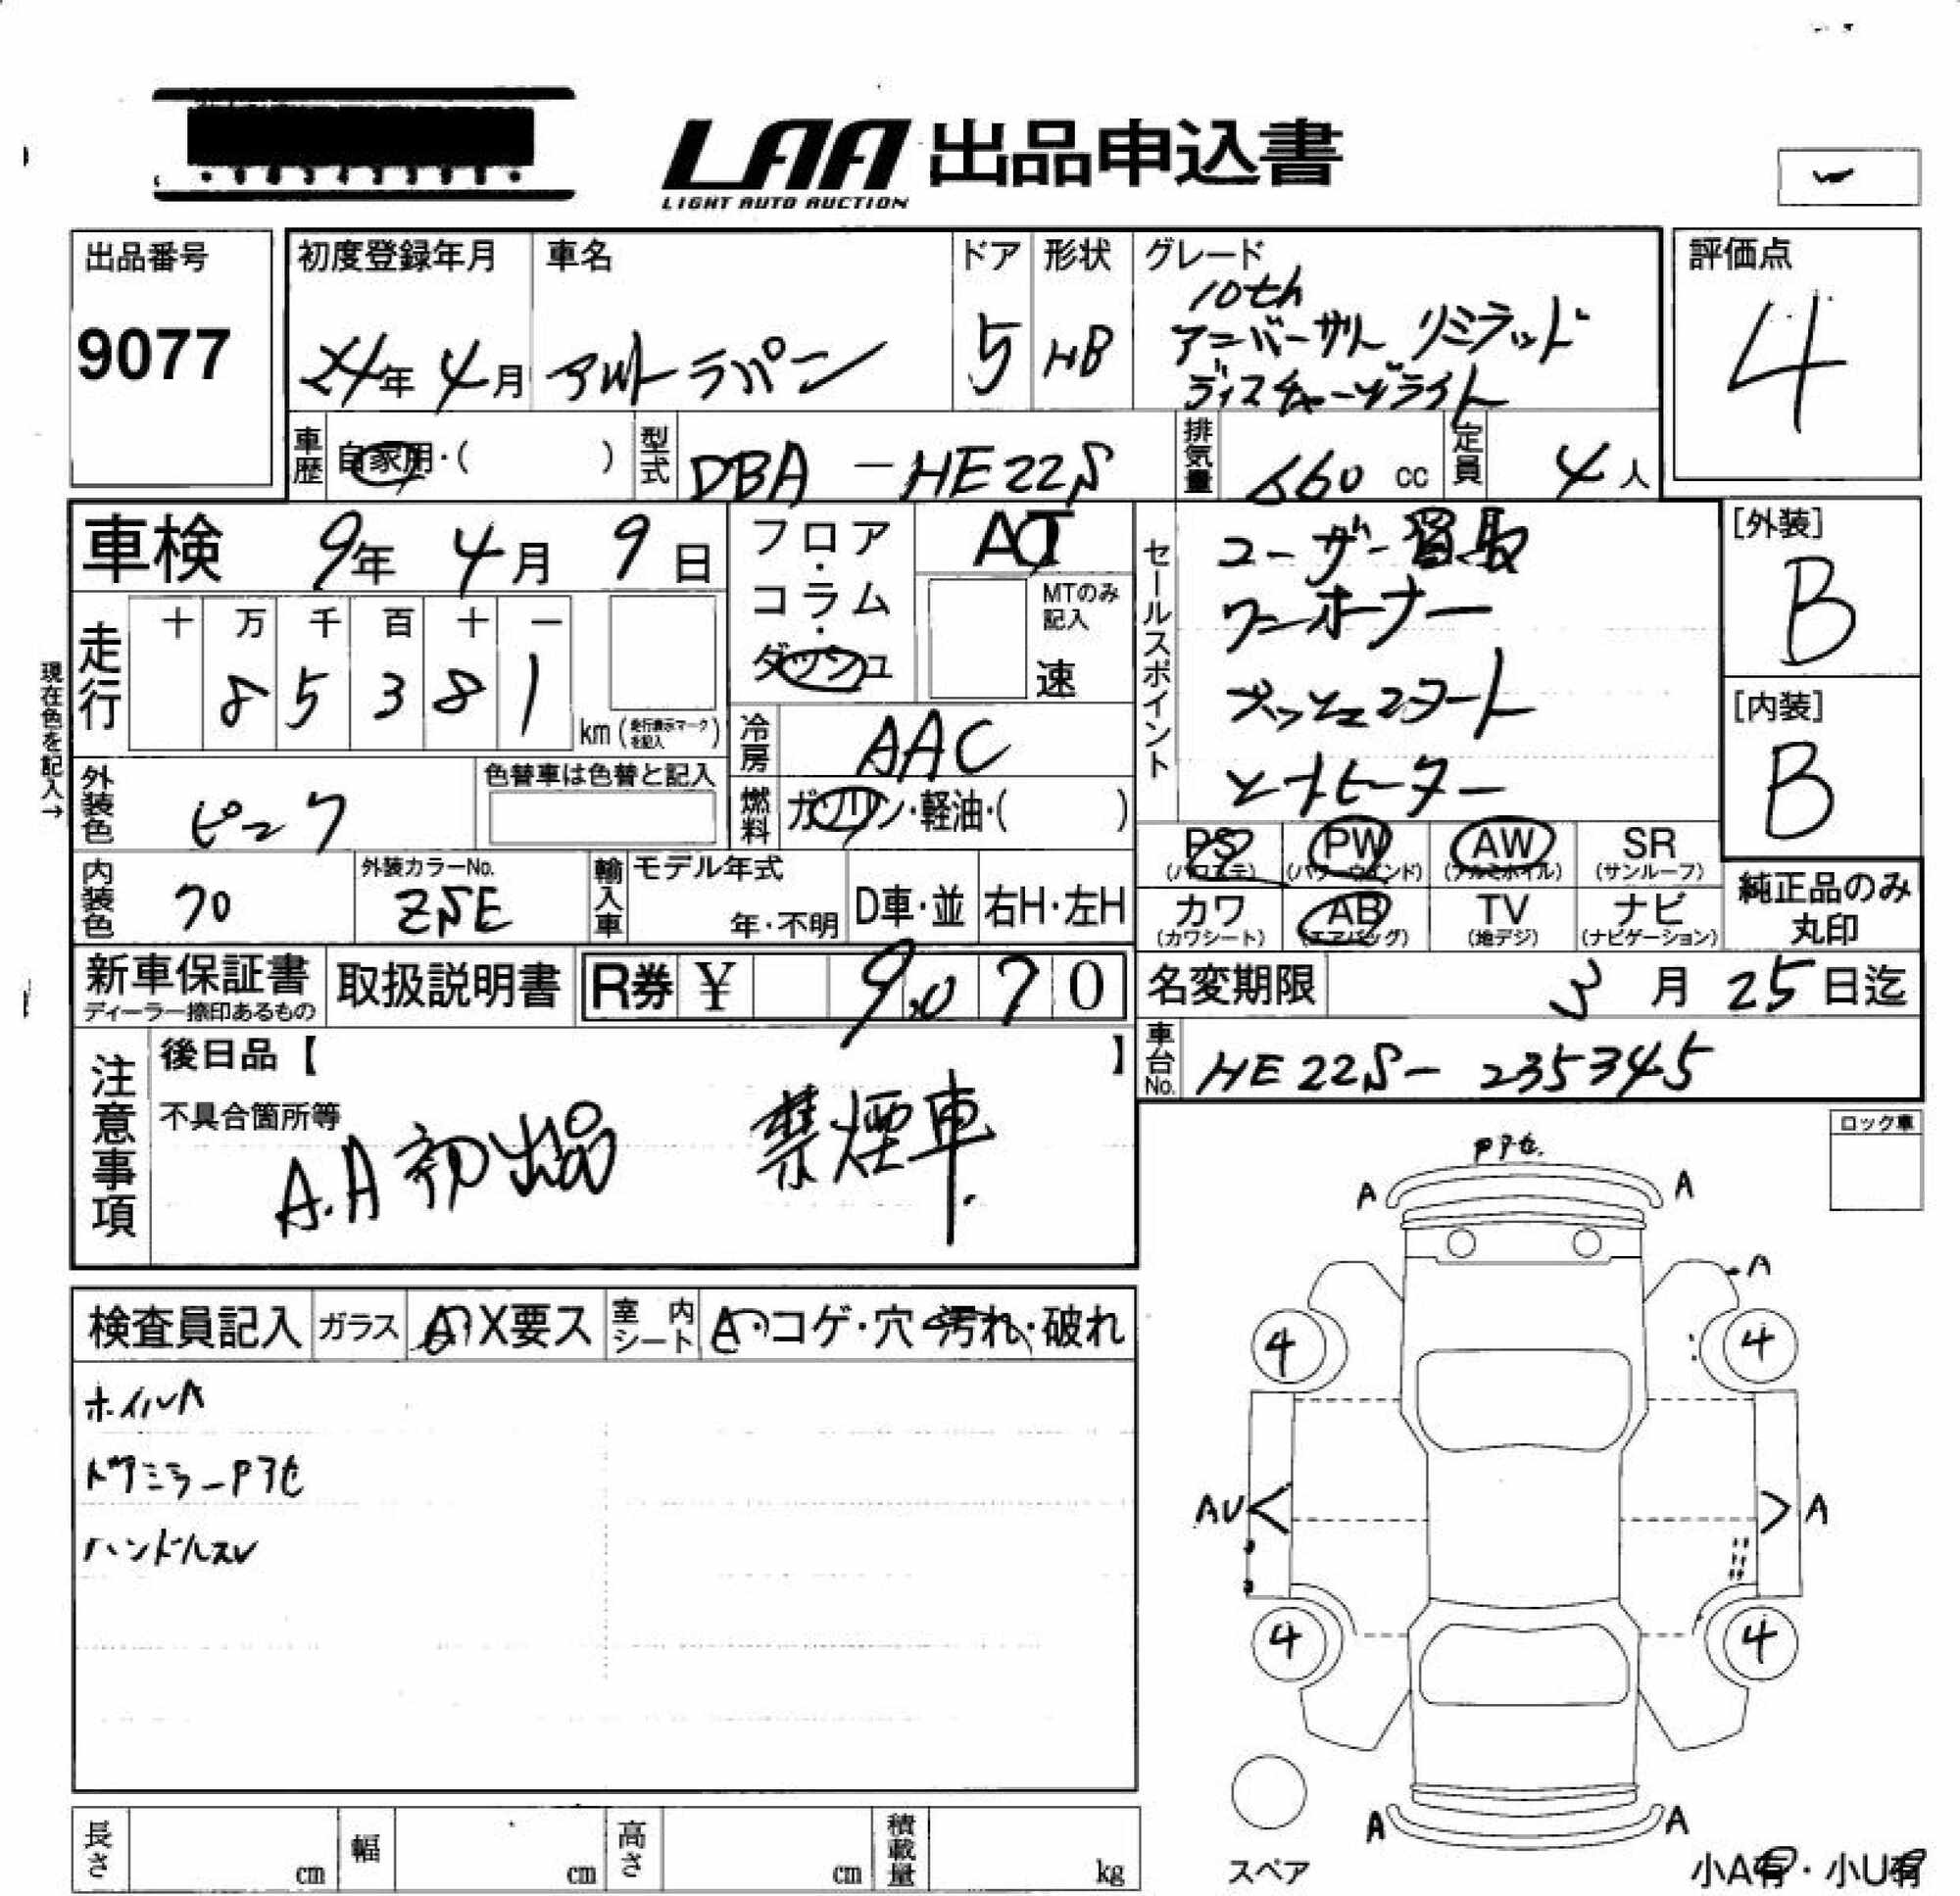 LAA 出品申込書
LIGHT AUTO AUCTION
出品番号
9077
初度登録年月
24年 4月
車名
アルトラパン
ドア
5
形状
HB
グレード
10th
アニバーサリー リミテッド
ディスチャージライト
評価点
4
車歴 自家用・( )
型式 DBA - HE22S
排気量 660 cc
定員 4人
車検 9年 4月 9日
走行 十 万 千 百 十 一
8 5 3 8 1
km (走行表示マークを記入)
現在色を記入→
フロア・コラム・ダッシュ
AT
MTのみ記入
速
冷房 AAC
燃料 ガソリン・軽油・( )
セールスポイント
ユーザー買取
ワンオーナー
プッシュスタート
シートヒーター
[外装]
B
[内装]
B
外装色 ピンク
色替車は色替と記入
内装色 70
外装カラーNo.
ZSE
輸入車 モデル年式
年・不明
D車・並 右H・左H
PS PW AW SR
(パワステ) (パワーウインド) (アルミホイル) (サンルーフ)
カワ AB TV ナビ
(カワシート) (エアバッグ) (地デジ) (ナビゲーション)
純正品のみ
丸印
新車保証書
ディーラー捺印あるもの
取扱説明書
R券 ¥ 9,070
名変期限 3月 25日迄
車台No. HE22S- 235345
注意事項
後日品【 】
不具合箇所等
A.A初出品 禁煙車.
ロック車
検査員記入 ガラス X要ス
室内シート A・コゲ・穴・汚れ・破れ
ホイルA
ドアミラーPアセ
ハンドルスレ
Pアセ.
A A
A
4 4
AU A
4 4
A A
スペア
小A有・小U有
長さ cm 幅 cm 高さ cm 積載量 kg